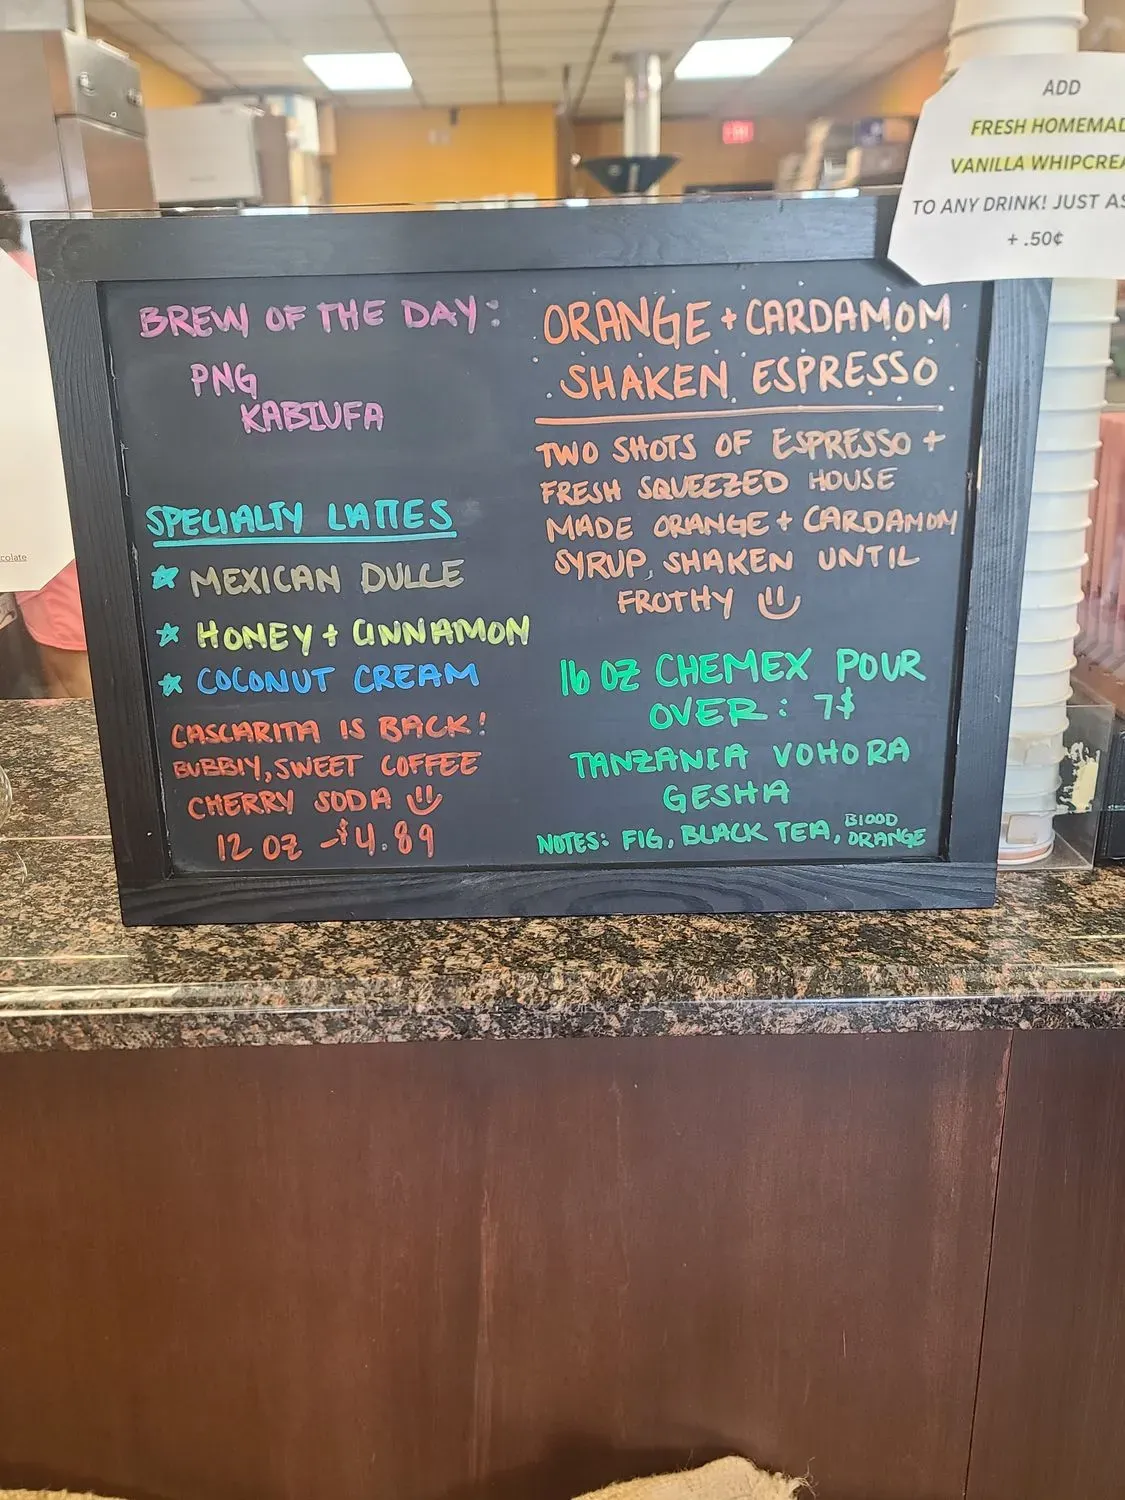 BREW OF THE DAY:
PNG
KABIUFA
SPECIALTY LATTES
MEXICAN DULCE
HONEY + CINNAMON
COCONUT CREAM
CASCARITA IS BACK!
BUBBLY, SWEET COFFEE
CHERRY SODA
12 OZ - $4.89
ORANGE + CARDAMOM
SHAKEN ESPRESSO
TWO SHOTS OF ESPRESSO +
FRESH SQUEEZED HOUSE
MADE ORANGE + CARDAMOM
SYRUP, SHAKEN UNTIL
FROTHY
16 OZ CHEMEX POUR
OVER: 7$
TANZANIA VOHORA
GESHA
NOTES: FIG, BLACK TEA, BLOOD ORANGE
ADD
FRESH HOMEMAD
VANILLA WHIPCREA
TO ANY DRINK! JUST AS
+ .50¢
colate
EXIT